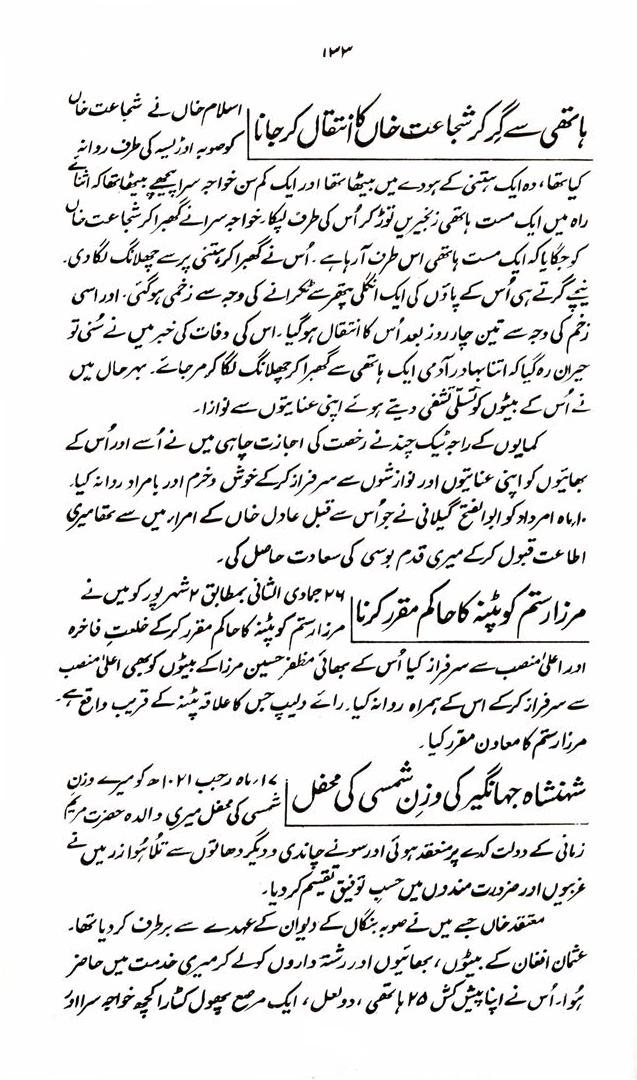 ۱۳۳
ہاتھی سے گر کر شجاعت خاں کا انتقال کر جانا
اسلام خاں نے شجاعت خاں
کو صوبہ اڑیسہ کی طرف روانہ
کیا تھا، وہ ایک ہتنی کے ہودے میں بیٹھا تھا اور ایک کم سن خواجہ سرا پیچھے بیٹھا تھا کہ اثنائے
راہ میں ایک مست ہاتھی زنجیریں توڑ کر اُس کی طرف لپکا۔ خواجہ سرا نے گھبرا کر شجاعت خاں
کو جگایا کہ ایک مست ہاتھی اس طرف آ رہا ہے۔ اُس نے گھبرا کر ہتنی پر سے چھلانگ لگا دی۔
نیچے گرتے ہی اُس کے پاؤں کی ایک انگلی پتھر سے ٹکرانے کی وجہ سے زخمی ہو گئی۔ اور اسی
زخم کی وجہ سے تین چار روز بعد اُس کا انتقال ہو گیا۔ اس کی وفات کی خبر میں نے سُنی تو
حیران رہ گیا کہ اتنا بہادر آدمی ایک ہاتھی سے گھبرا کر چھلانگ لگا کر مر جائے۔ بہر حال میں
نے اُس کے بیٹوں کو تسلی تشفی دیتے ہوئے اپنی عنایتوں سے نوازا۔
کمایوں کے راجہ ٹیک چند نے رخصت کی اجازت چاہی میں نے اُسے اور اُس کے
بھائیوں کو اپنی عنایتوں اور نوازشوں سے سرفراز کر کے خوش و خرم اور بامراد روانہ کیا۔
۱۰ ماہ امرداد کو ابوالفتح گیلانی نے جو اُس سے قبل عادل خاں کے امرار میں سے تھا میری
اطاعت قبول کر کے میری قدم بوسی کی سعادت حاصل کی۔
مرزا رستم کو پٹنہ کا حاکم مقرر کرنا
۲۶ جمادی الثانی بمطابق ۲ شہر یور کو میں نے
مرزا رستم کو پٹنہ کا حاکم مقرر کر کے خلعتِ فاخرہ
اور اعلیٰ منصب سے سرفراز کیا اُس کے بھائی مظفر حسین مرزا کے بیٹوں کو بھی اعلیٰ منصب
سے سرفراز کر کے اس کے ہمراہ روانہ کیا۔ رائے دلیپ جس کا علاقہ پٹنہ کے قریب واقع ہے۔
مرزا رستم کا معاون مقرر کیا۔
شہنشاہ جہانگیر کی وزنِ شمسی کی محفل
۱۷ ماہ رجب ۱۰۲۱ھ کو میرے وزنِ
شمسی کی محفل میری والدہ حضرت مریم
زمانی کے دولت کدے پر منعقد ہوئی اور سونے چاندی و دیگر دھاتوں سے تُلا ہُوا زر میں نے
غریبوں اور ضرورت مندوں میں حسبِ توفیق تقسیم کر دیا۔
معتقد خاں جسے میں نے صوبہ بنگال کے دیوان کے عہدے سے برطرف کر دیا تھا۔
عثمان افغان کے بیٹوں، بھائیوں اور رشتہ داروں کو لے کر میری خدمت میں حاضر
ہُوا۔ اُس نے اپنا پیش کش ۲۵ ہاتھی، دو لعل، ایک مرصع پھول کٹارا کچھ خواجہ سرا اور